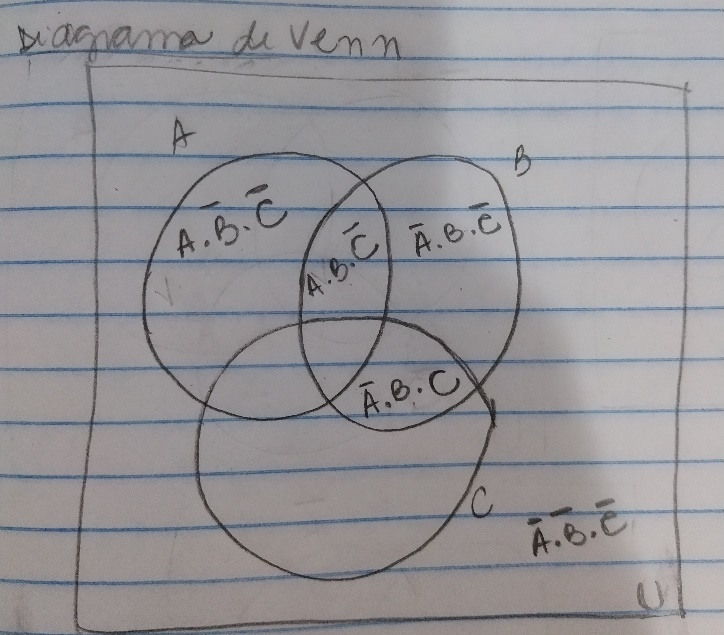 Diagrama de Venn
A
B
A.B̅.C̅
A.B.C̅
A̅.B.C̅
A̅.B.C
C
A̅.B̅.C̅
U